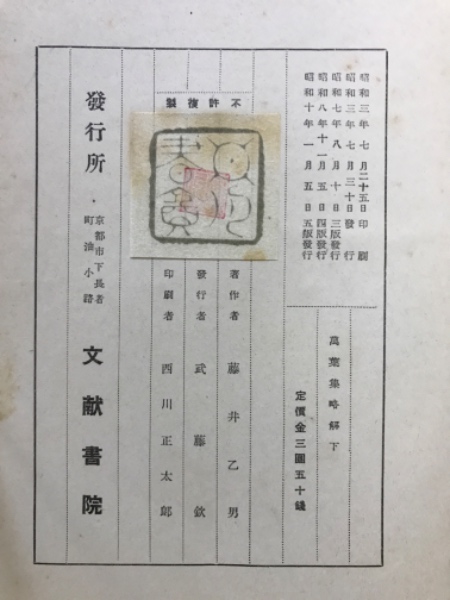 昭和三年七月二十五日印刷
昭和三年七月三十日發行
昭和七年八月十日三版發行
昭和八年十一月五日四版發行
昭和十年一月五日五版發行
萬葉集略解下
定價金三圓五十錢
不許複製
著作者 藤井乙男
發行者 武藤欽
印刷者 西川正太郎
發行所
京都市下長者
町油小路
文献書院